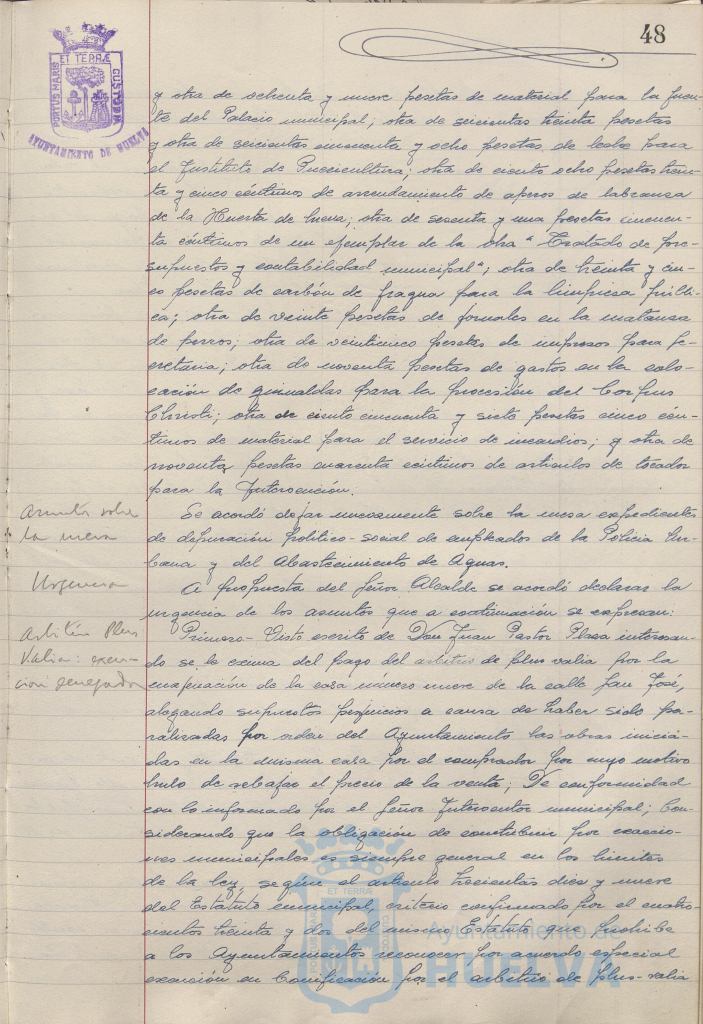 48
PORTUS MARIS ET TERRÆ CUSTODIA
AYUNTAMIENTO DE HUELVA
y otra de ochenta y nueve pesetas de material para la fuen-
te del Palacio municipal; otra de seiscientas treinta pesetas
y otra de seiscientas cincuenta y ocho pesetas de leche para
el Instituto de Puericultura; otra de ciento ocho pesetas trein-
ta y cinco céntimos de arrendamiento de aperos de labranza
de la Huerta de mena; otra de sesenta y una pesetas cincuen-
ta céntimos de un ejemplar de la obra "Tratado de pre-
supuestos y contabilidad municipal"; otra de treinta y cin-
co pesetas de carbón de fragua para la limpieza públi-
ca; otra de veinte pesetas de jornales en la matanza
de perros; otra de veinticinco pesetas de impresos para Se-
cretaria; otra de noventa pesetas de gastos en la colo-
cación de guirnaldas para la procesión del Corpus
Christi; otra de ciento cincuenta y siete pesetas cinco cén-
timos de material para el servicio de incendios; y otra de
noventa pesetas cuarenta céntimos de artículos de tocador
para la Intervención.
Asuntos sobre
la mesa
Se acordó dejar nuevamente sobre la mesa expedientes
de depuración político-social de empleados de la Policía Ur-
bana y del Abastecimiento de Aguas.
Urgencia
A propuesta del Señor Alcalde se acordó declarar la
urgencia de los asuntos que a continuación se expresan:
Arbitrio Plus
Valia: exen-
cion denegada
Primero- Visto escrito de Don Juan Pastor Plaza interesan-
do se le exima del pago del arbitrio de plus valia por la
enagenación de la casa número nueve de la calle San José,
alegando supuestos perjuicios a causa de haber sido pa-
ralizadas por orden del Ayuntamiento las obras inicia-
das en la misma casa por el comprador por cuyo motivo
hubo de rebajar el precio de la venta; De conformidad
con lo informado por el Señor Interventor municipal; Con-
siderando que la obligación de contribuir por exaccio-
nes municipales es siempre general en los limites
de la ley, segun el articulo trecientos diez y nueve
del Estatuto municipal, criterio confirmado por el cuatro-
cientos treinta y dos del mismo Estatuto que prohibe
a los Ayuntamientos reconocer por acuerdo especial
exención en bonificación por el arbitrio de plus-valia
PORTUS MARIS ET TERRÆ CUSTODIA
Ayuntamiento de
HUELVA